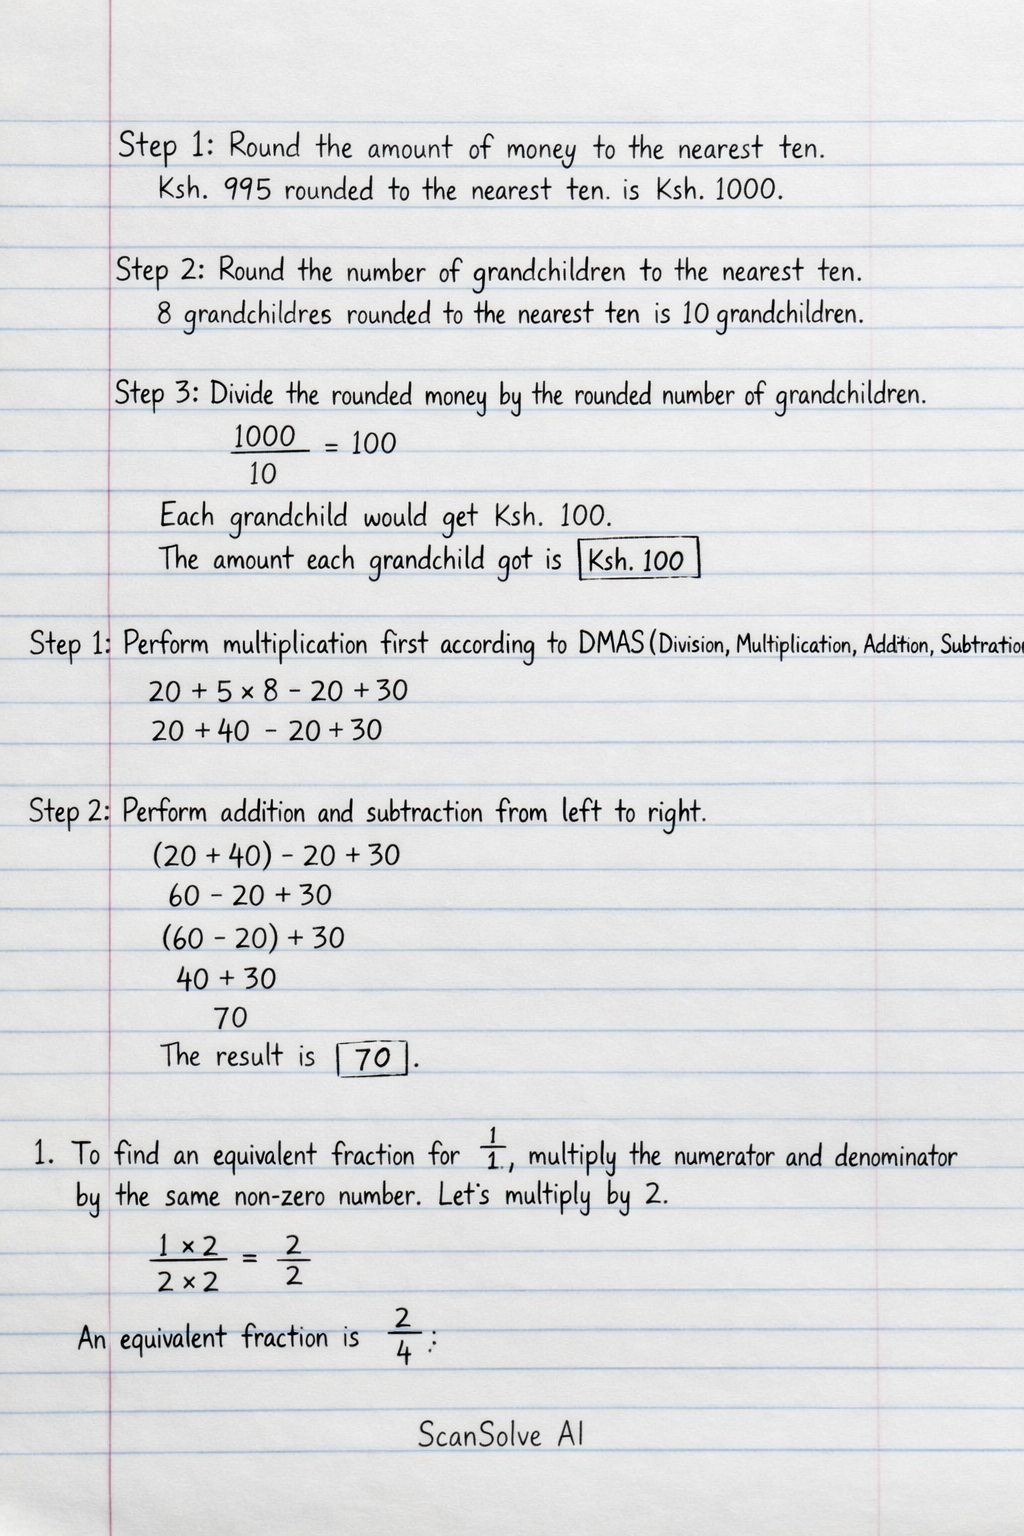 Step 1: Round the amount of money to the nearest ten.
Ksh. 995 rounded to the nearest ten. is Ksh. 1000.
Step 2: Round the number of grandchildren to the nearest ten.
8 grandchildres rounded to the nearest ten is 10 grandchildren.
Step 3: Divide the rounded money by the rounded number of grandchildren.
1000/10 = 100
Each grandchild would get Ksh. 100.
The amount each grandchild got is Ksh. 100
Step 1: Perform multiplication first according to DMAS (Division, Multiplication, Addtion, Subtratio
20 + 5 × 8 - 20 + 30
20 + 40 - 20 + 30
Step 2: Perform addition and subtraction from left to right.
(20 + 40) - 20 + 30
60 - 20 + 30
(60 - 20) + 30
40 + 30
70
The result is 70.
1. To find an equivalent fraction for 1/1., multiply the numerator and denominator
by the same non-zero number. Let's multiply by 2.
1 × 2 / 2 × 2 = 2/2
An equivalent fraction is 2/4 :
ScanSolve AI